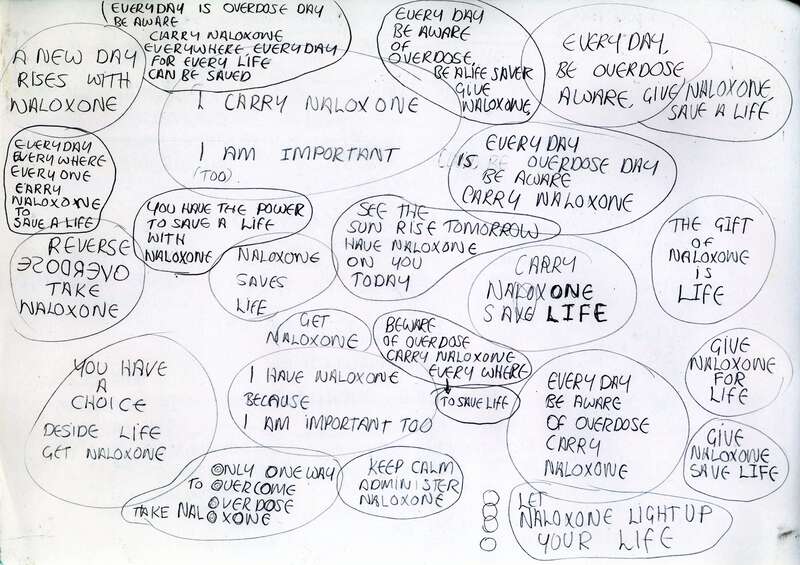 EVERYDAY IS OVERDOSE DAY
BE AWARE
CARRY NALOXONE
EVERYWHERE, EVERYDAY
FOR EVERY LIFE
CAN BE SAVED
EVERY DAY
BE AWARE
OF
OVERDOSE,
BE A LIFE SAVER
GIVE
NALOXONE,
EVERY DAY,
BE OVERDOSE
AWARE, GIVE NALOXONE,
SAVE A LIFE
A NEW DAY
RISES WITH
NALOXONE
I CARRY NALOXONE
I AM IMPORTANT
(TOO).
EVERYDAY
EVERYWHERE
EVERYONE
CARRY
NALOXONE
TO
SAVE A LIFE
EVERYDAY
IS, BE OVERDOSE DAY
BE AWARE
CARRY NALOXONE
YOU HAVE THE POWER
TO SAVE A LIFE
WITH
NALOXONE
SEE THE
SUN RISE TOMORROW
HAVE NALOXONE
ON YOU
TODAY
THE GIFT
OF
NALOXONE
IS
LIFE
REVERSE
OVERDOSE
TAKE
NALOXONE
NALOXONE
SAVES
LIFE
CARRY
NALOXONE
SAVE LIFE
GET
NALOXONE
BEWARE
OF OVERDOSE
CARRY NALOXONE
EVERY WHERE
TO SAVE LIFE
GIVE
NALOXONE
FOR
LIFE
YOU HAVE
A
CHOICE
DESIDE LIFE
GET NALOXONE
I HAVE NALOXONE
BECAUSE
I AM IMPORTANT TOO
EVERYDAY
BE AWARE
OF OVERDOSE
CARRY
NALOXONE
GIVE
NALOXONE
SAVE LIFE
ONLY ONE WAY
TO OVERCOME
OVERDOSE
TAKE NALOXONE
KEEP CALM
ADMINISTER
NALOXONE
LET
NALOXONE LIGHT UP
YOUR LIFE